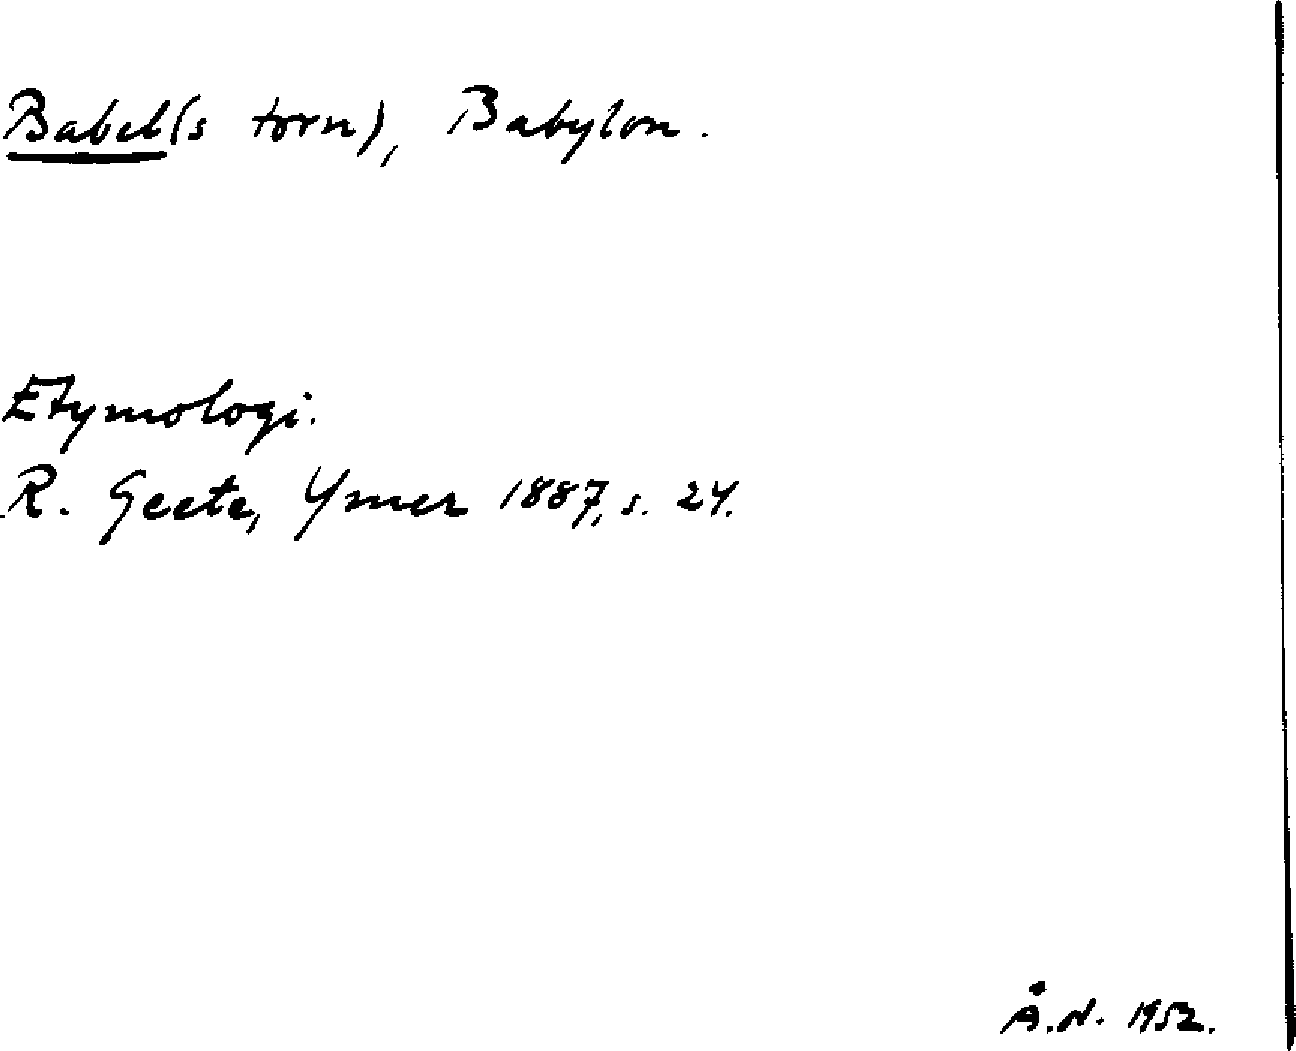 Babel(s torn), Babylon.
Etymologi.
R. Geete, Ymer 1887, s. 24.
Å.N. 1952.